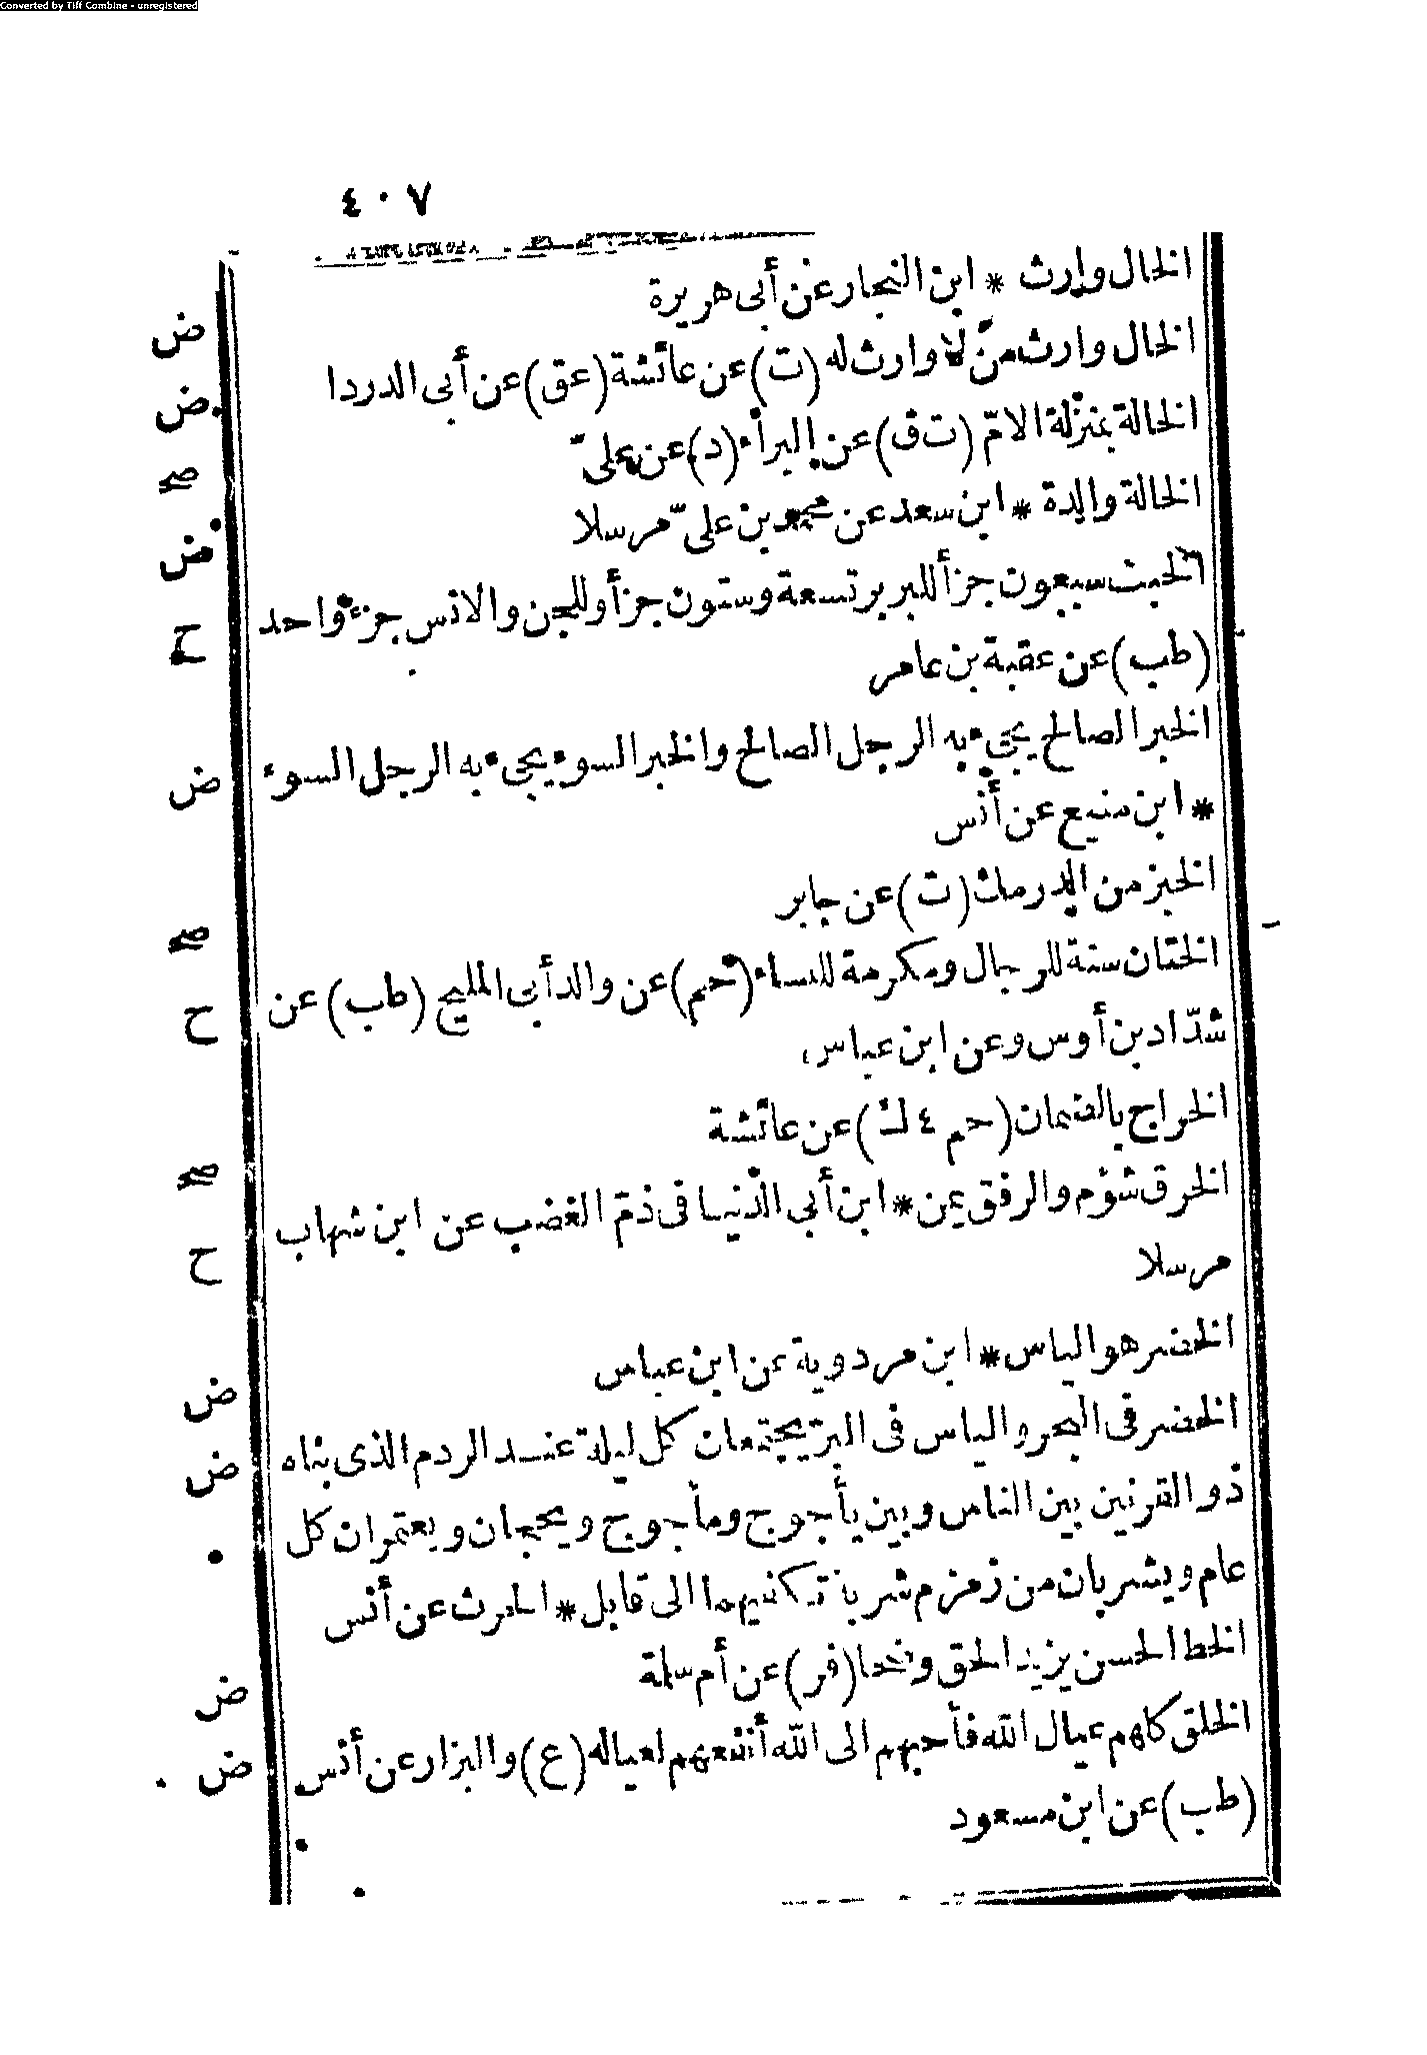 Converted by Tiff Combine - unregistered
٤٠٧
الخال وارث * ابن النجار عن أبى هريرة
ض
الخال وارث من لا وارث له (ت) عن عائشة (عق) عن أبى الدردا
ض
الخالة بمنزلة الامّ (ت ق) عن البرأء (د) عن علىّ
صح
الخالة والدة * ابن سعد عن محمد بن علىّ مرسلا
ض
الخبث سبعون جزأ للبر بر تسعة وستون جزأ وللجن والانس جزء واحد
ح
(طب) عن عقبة بن عامر
الخبر الصالح يجىء به الرجل الصالح والخبر السوء يجىء به الرجل السوء
ض
* ابن منيع عن أنس
الخبز من الدرمك (ت) عن جابر
صح
الختان سنة للرجال ومكرمة للنساء (حم) عن والد أبى المليح (طب) عن
ح
شدّاد بن أوس وعن ابن عباس
الخراج بالضمان (حم ٤ ك) عن عائشة
صح
الخرق شؤم والرفق يمن * ابن أبى الدّنيا فى ذمّ الغضب عن ابن شهاب
ح
مرسلا
الخضر هو الياس * ابن مردوية عن ابن عباس
ض
الخضر فى البحر والياس فى البرّ يجتمعان كل ليلة عند الردم الذى بناه
ض
ذو القرنين بين الناس وبين يأجوج ومأجوج ويحجان ويعتمران كل
عام ويشربان من زمزم شربة تكفيهما الى قابل * الحرث عن أنس
الخط الحسن يزيد الحق وضحا (فر) عن أم سلمة
ض
الخلق كلهم عيال الله فأحبهم الى الله أنفعهم لعياله (ع) والبزار عن أنس
ض
(طب) عن ابن مسعود